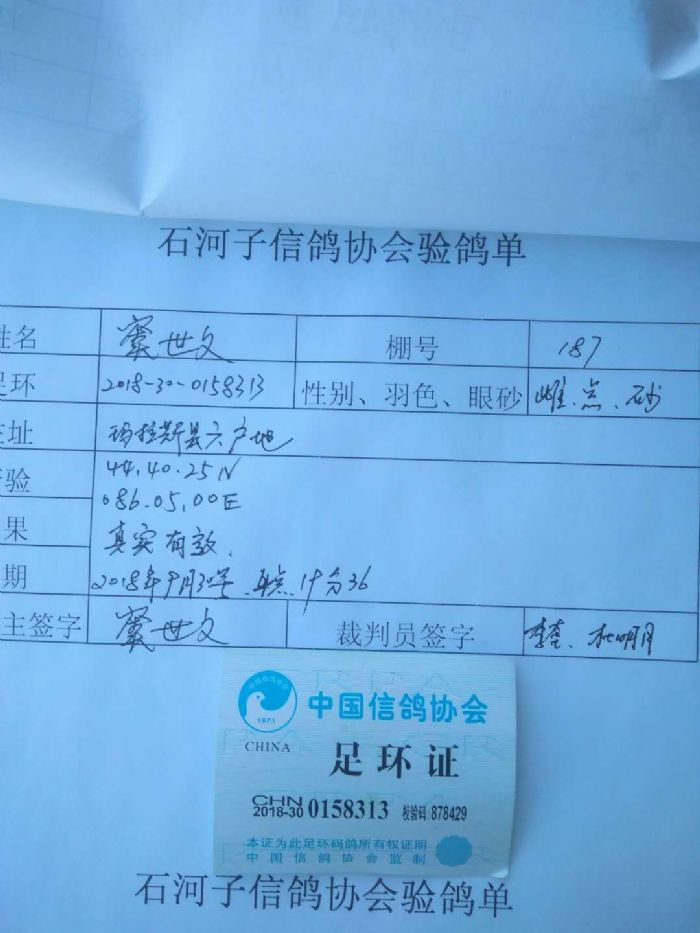 石河子信鸽协会验鸽单
姓名 窦世文 棚号 187
足环 2018-30-0158313 性别、羽色、眼砂 雌.点.砂
址 玛拉斯县六户地
验 44.40.25N
086.05.00E
果 真实有效.
期 2018年9月30号 分36
主签字 窦世文 裁判员签字 杜明月
中国信鸽协会
CRPA
CHINA
足环证
CHN
2018-30 0158313 校验码:878429
本证为此足环码鸽所有权证明
中国信鸽协会监制
石河子信鸽协会验鸽单